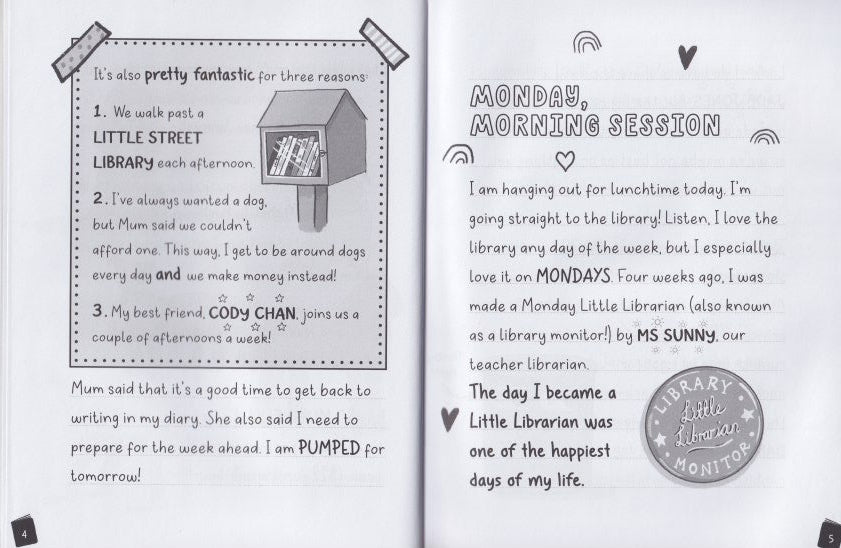 It's also pretty fantastic for three reasons:
1. We walk past a
LITTLE STREET
LIBRARY each afternoon.
2. I've always wanted a dog,
but Mum said we couldn't
afford one. This way, I get to be around dogs
every day and we make money instead!
3. My best friend, CODY CHAN, joins us a
couple of afternoons a week!
Mum said that it's a good time to get back to
writing in my diary. She also said I need to
prepare for the week ahead. I am PUMPED for
tomorrow!
4
MONDAY,
MORNING SESSION
I am hanging out for lunchtime today. I'm
going straight to the library! Listen, I love the
library any day of the week, but I especially
love it on MONDAYS. Four weeks ago, I was
made a Monday Little Librarian (also known
as a library monitor!) by MS SUNNY, our
teacher librarian.
The day I became a
Little Librarian was
one of the happiest
days of my life.
LIBRARY
Little
Librarian
MONITOR
5